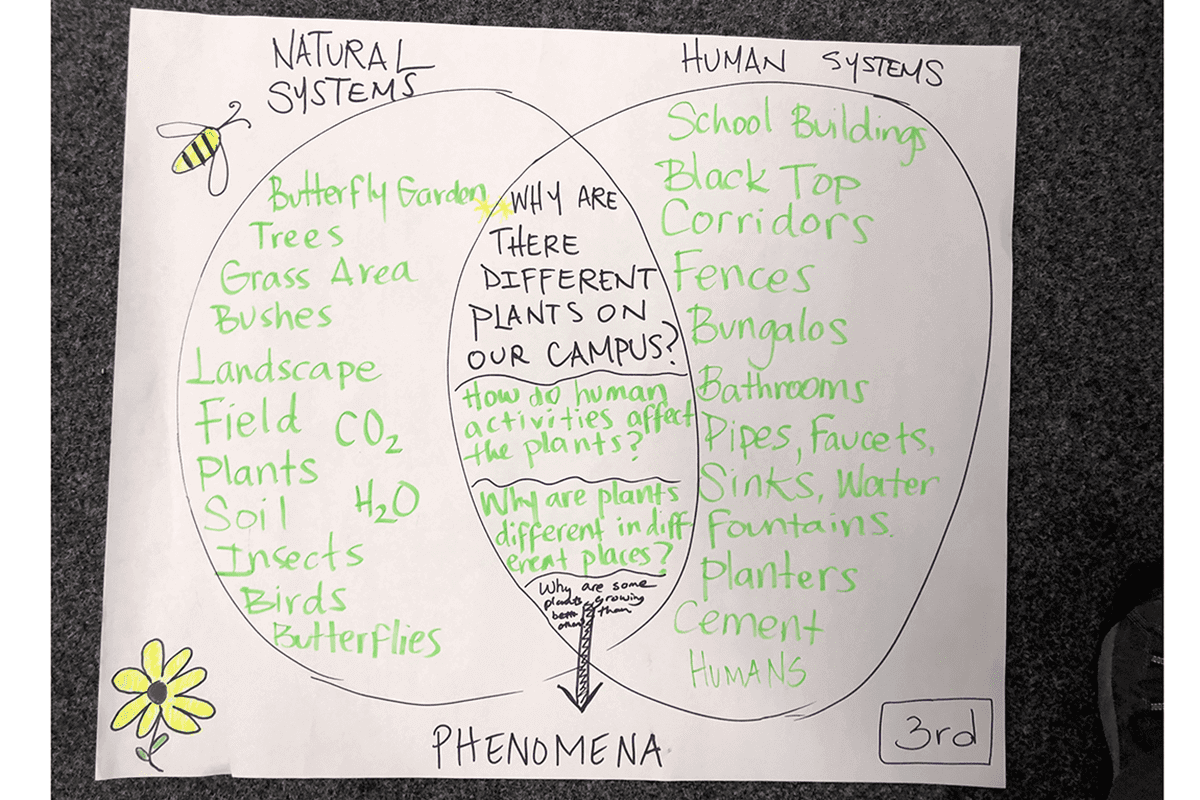 NATURAL
SYSTEMS
Butterfly Garden
Trees
Grass Area
Bushes
Landscape
Field CO2
Plants
Soil H2O
Insects
Birds
Butterflies
WHY ARE
THERE
DIFFERENT
PLANTS ON
OUR CAMPUS?
How do human
activities affect
the plants?
Why are plants
different in diff
erent places?
Why are some
plants growing
than
HUMAN SYSTEMS
School Buildings
Black Top
Corridors
Fences
Bungalos
Bathrooms
Pipes, Faucets,
Sinks, Water
Fountains.
Planters
Cement
HUMANS
PHENOMENA
3rd